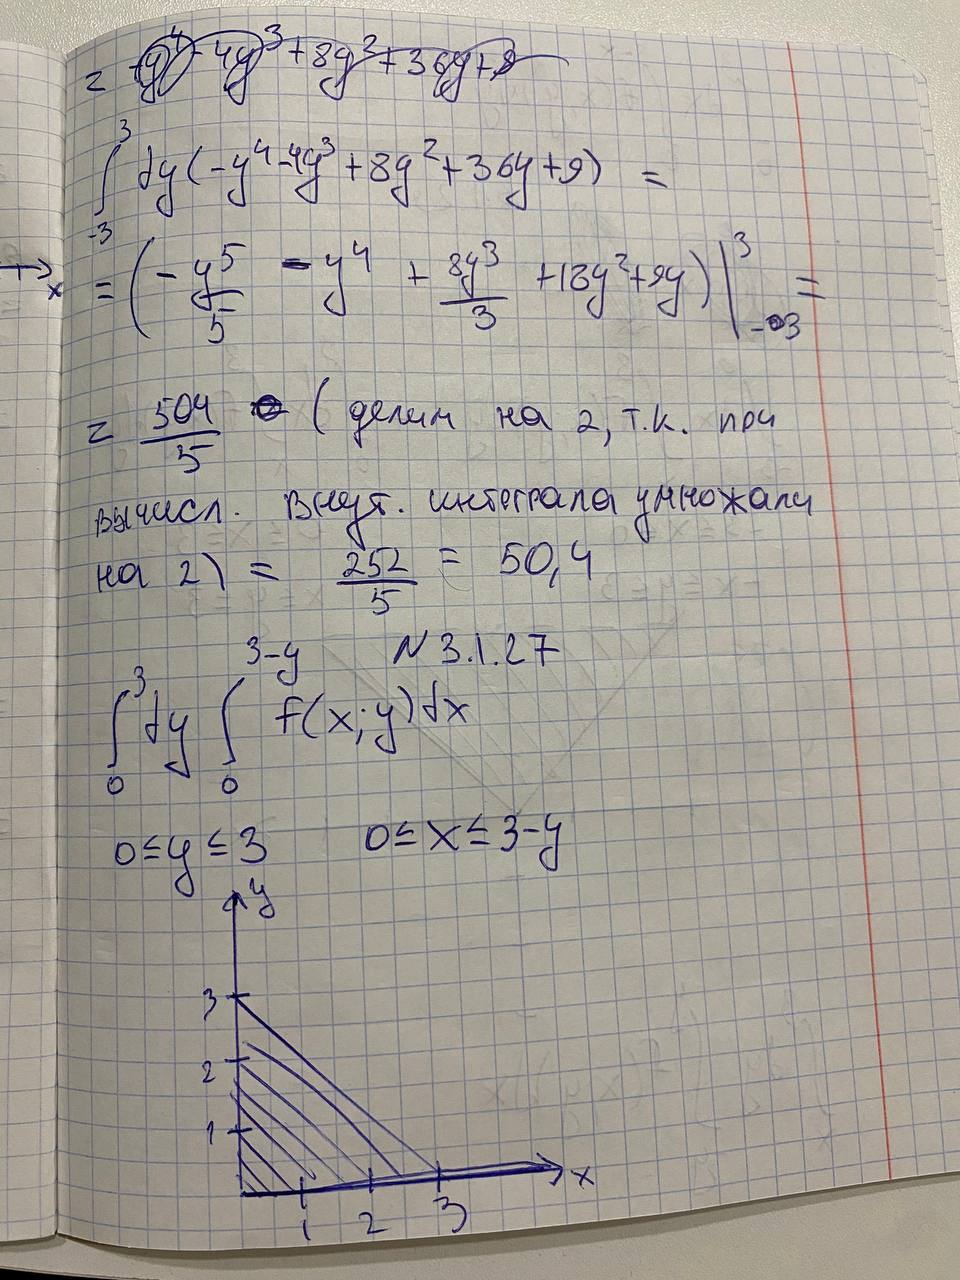 = -y⁴ - 4y³ + 8y² + 36y + 9
∫₋₃³ dy(-y⁴ - 4y³ + 8y² + 36y + 9) =
= (-y⁵/5 - y⁴ + 8y³/3 + 18y² + 9y)|₋₃³ =
= 504/5 (делим на 2, т.к. при
вычисл. внут. интеграла умножали
на 2) = 252/5 = 50,4
N 3.1.27
∫₀³ dy ∫₀³⁻ʸ f(x;y)dx
0≤y≤3 0≤x≤3-y
y
3
2
1
1 2 3 x
x